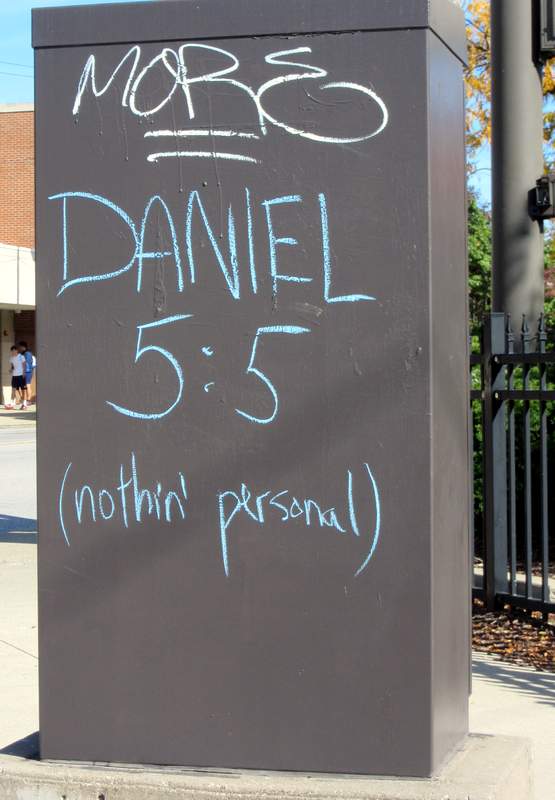 MORS
DANIEL
5:5
(nothin' personal)